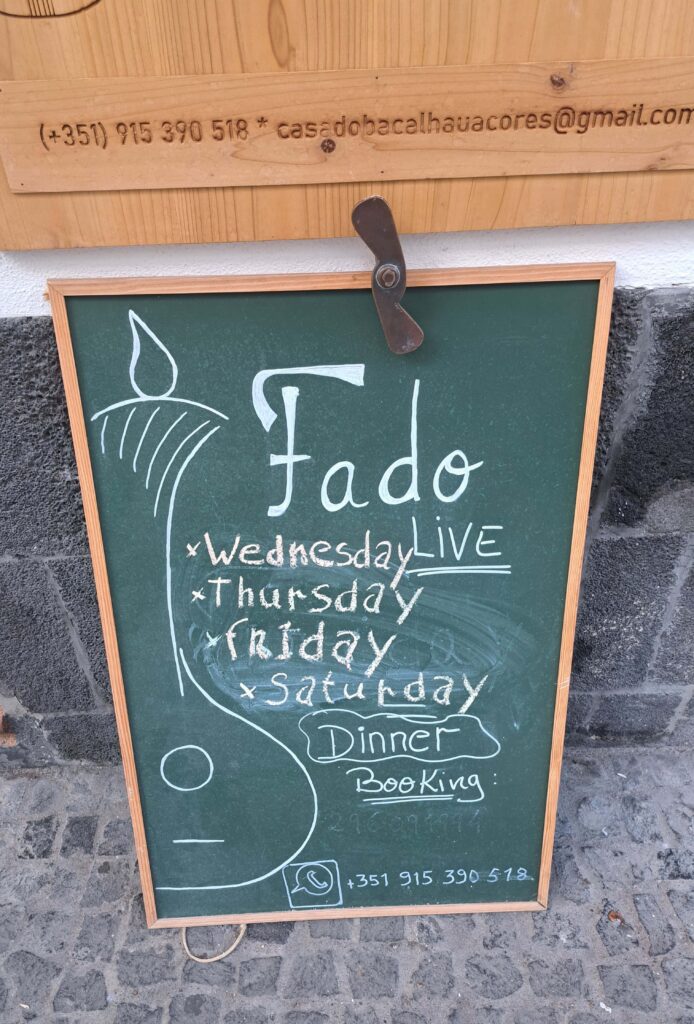 (+351) 915 390 518 * casadobacalhauacores@gmail.com
Fado
LIVE
×Wednesday
×Thursday
×friday
×Saturday
Dinner
Booking:
+351 915 390 518